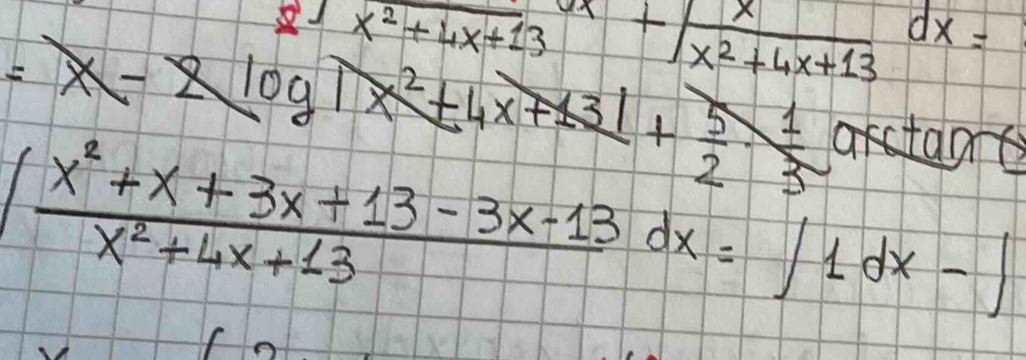 ∫ x² + 4x + 13 dx + ∫ x / x² + 4x + 13 dx =
= x - 2 log |x² + 4x + 13| + 5/2 · 1/3 arctan
∫ x² + x + 3x + 13 - 3x - 13 / x² + 4x + 13 dx = ∫ 1 dx - ∫